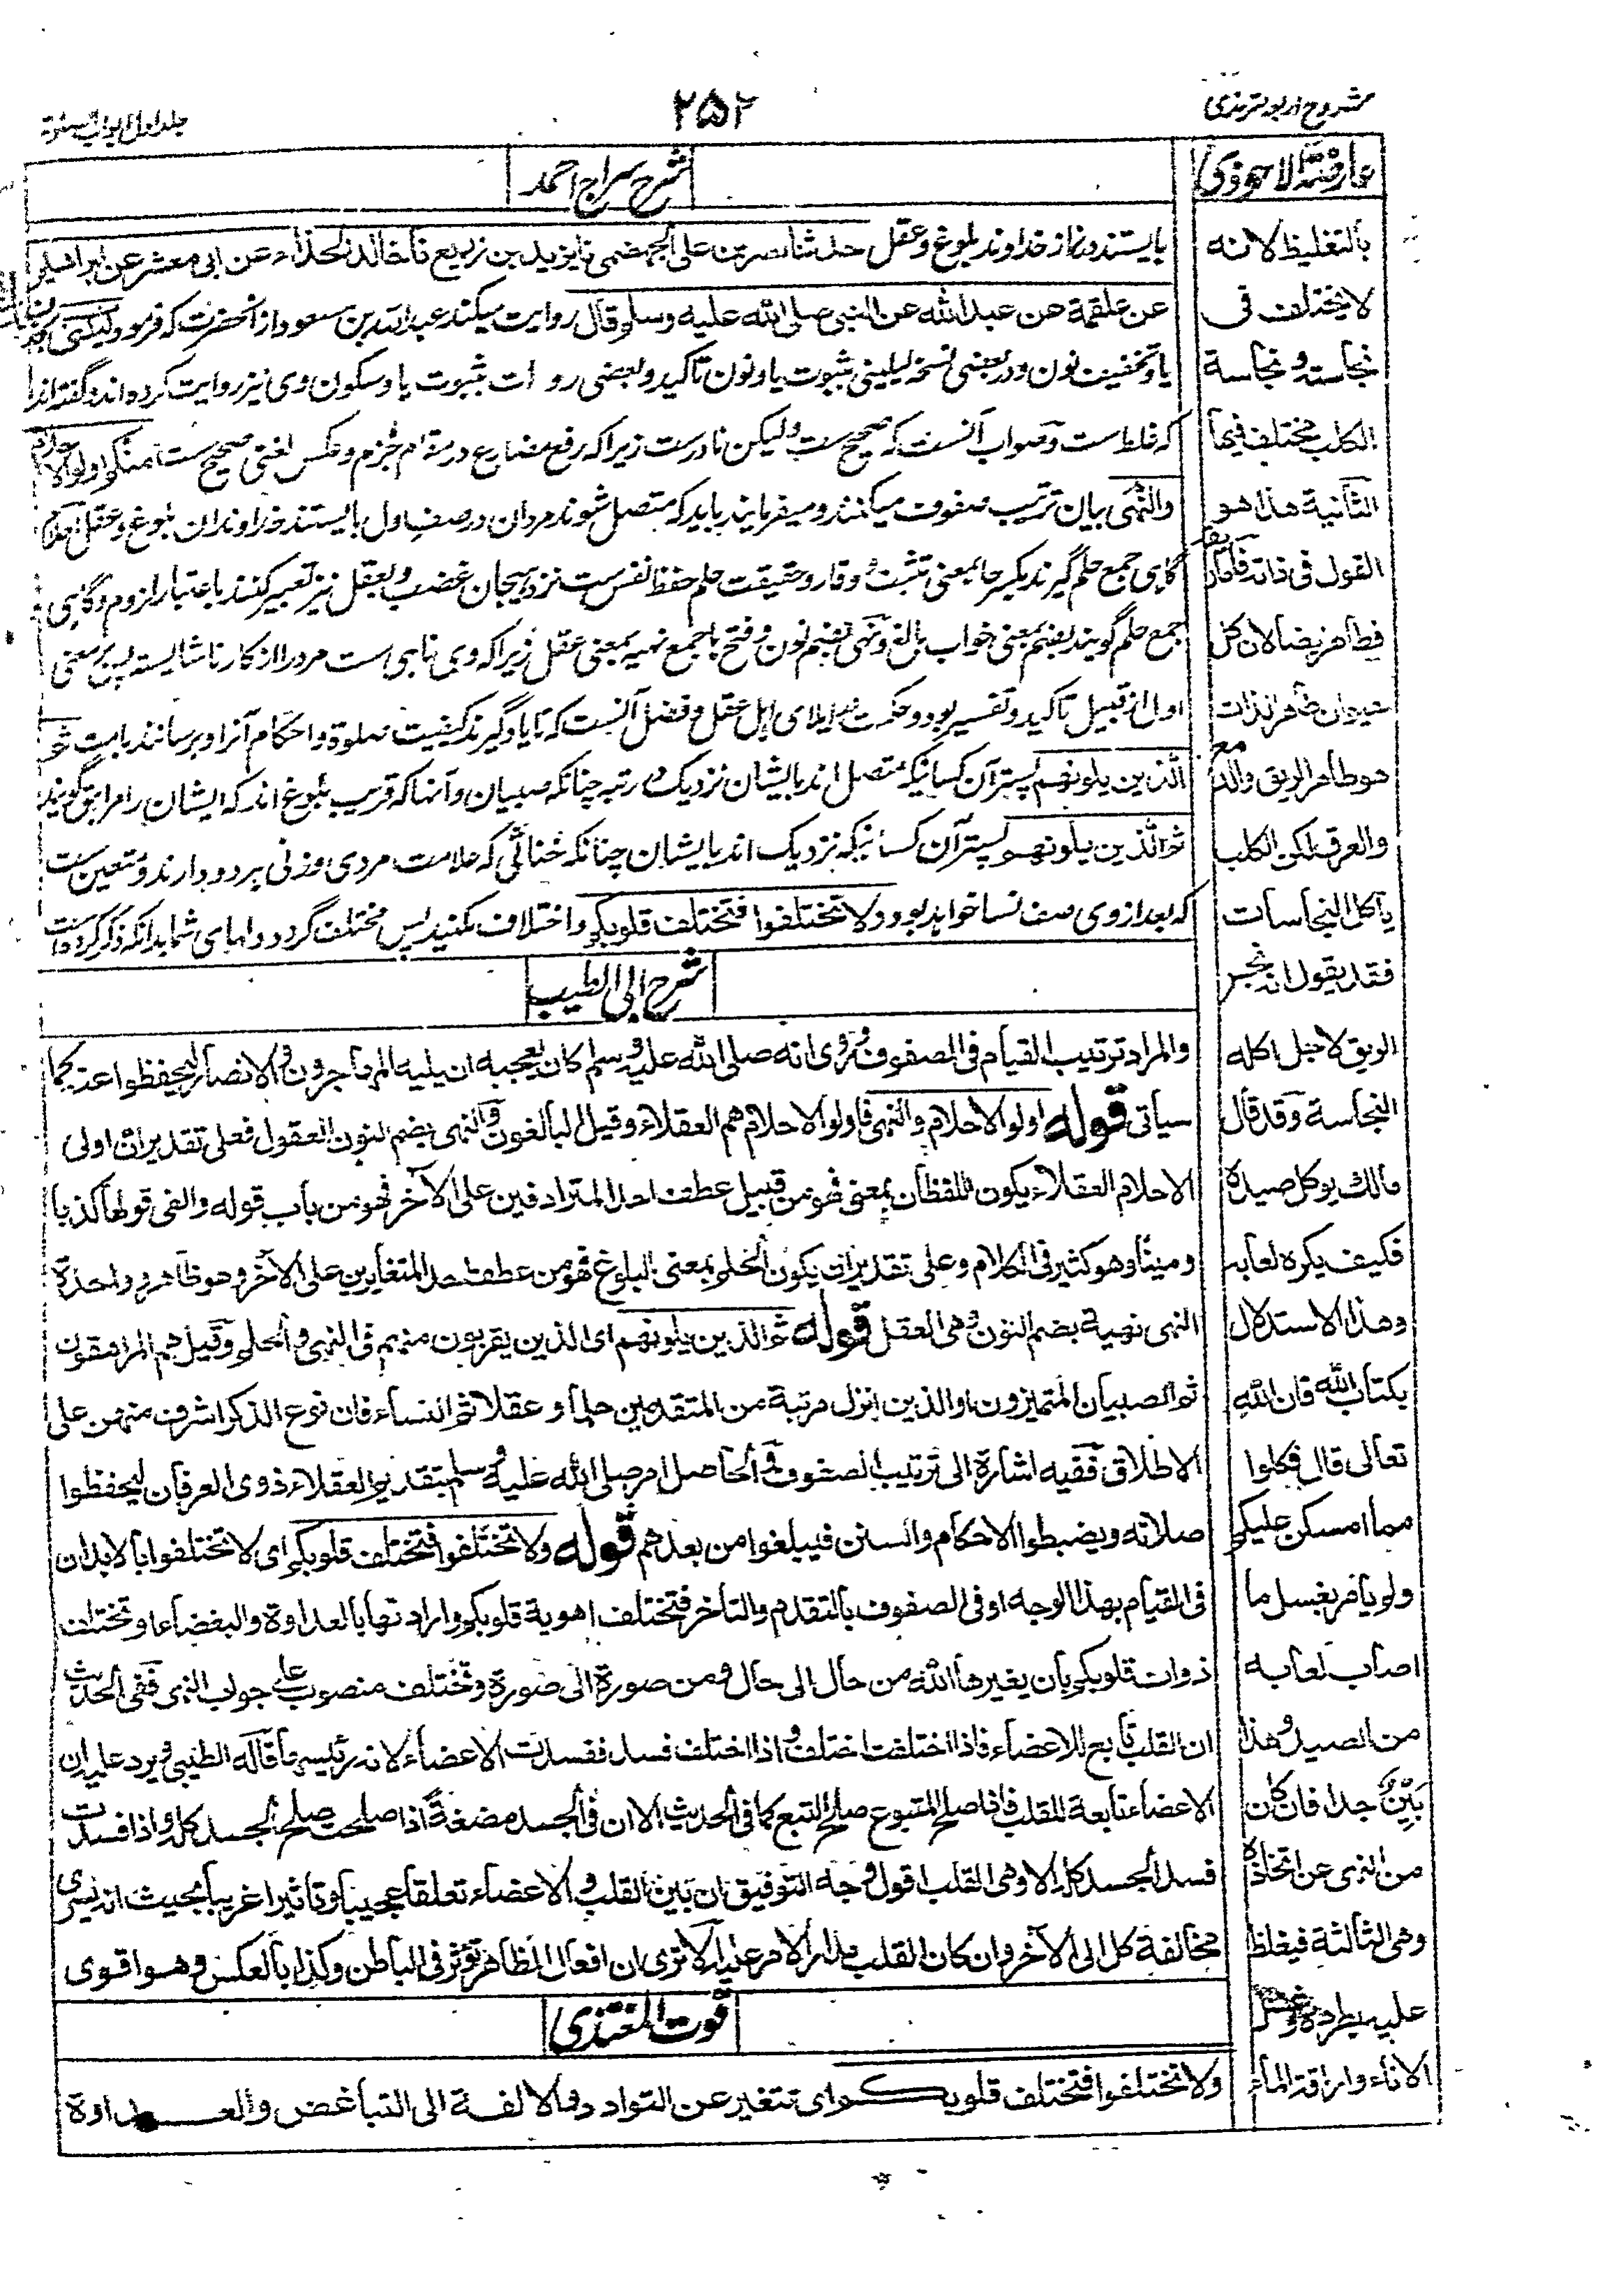 مشروح اربعہ ترمذی
۲۵۲
جلد اول ابواب الصلوة
عارضة الاحوذی
بالتغلیظ لانه
لا یختلف فی
نجاسته و نجاسة
الکلب مختلف فیها
الثانیة هذا هو
القول فی ذاته فاما
فطاهر ایضا لان کل
حیوان طاهر الذات
هو طاهر الریق والدمع
والعرق لکن الکلب
یاکل النجاسات
فقد یقول انه نجس
الریق لاجل اکله
النجاسة وقد قال
مالك یوکل صیده
فکیف یکره لعابه
وهذا الاستدلال
بکتاب الله فان الله
تعالی قال فکلوا
مما امسکن علیکم
ولو یامر بغسل ما
اصاب لعابه
من الصید وهذا
بین جدا فان کان
من النهی عن اتخاذه
وهی الثالثة فیغلظ
علیه بطرده و
الاناء واراقة الماء
شرح سراج احمد
بایستند در نماز خداوند بلوغ و عقل حدثنا نصر بن علی الجهضمی نا یزید بن زریع نا خالد الحذاء عن ابی معشر عن ابراهیم
عن علقمة عن عبد الله عن النبی صلی الله علیه وسلم قال روایت میکند عبد الله بن مسعود از آنحضرت که فرمود لیلنی
یا و تخفیف نون و در بعضی نسخه لیلینی ثبوت یا و نون تاکید و بعضی روات ثبوت یا و سکون وی نیز روایت کرده اند و گفته اند
که غلط ست و صواب آنست که صحیح ست ولیکن نادرست زیرا که رفع مضارع در مقام جزم و عکس لغتی صحیح ست منکم اولوا الاحلام
والنهی بیان ترتیب صفوف میکنند و میفرمایند باید که متصل شوند مردان در صف اول بایستند خداوندان بلوغ و عقل احلام
گاهی جمع حلم گیرند بکسر حا بمعنی تثبت و وقار و حقیقت حلم حفظ نفس ست نزد هیجان غضب و بعقل نیز تعبیر کنند باعتبار لزوم و گاهی
جمع حلم گویند بضم بمعنی خواب بالغ و نهی بضم نون و فتح ها جمع نهیه بمعنی عقل زیرا که وی ناهی ست مر در از کار ناشایسته پس بر معنی
اول از قبیل تاکید و تفسیر بود و حکمت در ایلای اهل عقل و فضل آنست که تا یاد گیرند کیفیت صلوة و احکام آنرا و برسانند بامت ثم
الذین یلونهم پستر آن کسانیکه متصل اند بایشان نزدیک در رتبه چنانکه صبیان و آنها که قریب بلوغ اند که ایشان را مراهق گویند
ثم الذین یلونهم پستر آن کسانیکه نزدیک اند بایشان چنانکه خناثی که علامت مردی و زنی هر دو دارند و متعین ست
که بعد از وی صف نسا خواهد بود ولا تختلفوا فتختلف قلوبکم و اختلاف مکنید پس مختلف گردد دلهای شما بدانکه ذکر کرده است
شرح ابی الطیب
والمراد ترتیب القیام فی الصفوف وروی انه صلی الله علیه وسلم کان یعجبه ان یلیه المهاجرون والانصار لیحفظوا عنه کما
سیاتی قوله اولو الاحلام والنهی فاولو الاحلام هم العقلاء وقیل البالغون والنهی بضم النون العقول فعلی تقدیر ان اولی
الاحلام العقلاء یکون اللفظان بمعنی فهو من قبیل عطف احد المترادفین علی الآخر فهو من باب قوله والفی قولها کذبا
ومینا وهو کثیر فی الکلام وعلی تقدیر ان یکون الحلم بمعنی البلوغ فهو من عطف احد المتغایرین علی الآخر وهو ظاهر وواحدة
النهی نهیة بضم النون وهی العقل قوله ثم الذین یلونهم ای الذین یقربون منهم فی النهی والحلم وقیل هم المراهقون
ثم الصبیان المتمیزون او الذین انزل مرتبة من المتقدمین حلما وعقلا ثم النساء فان نوع الذکر اشرف منهن علی
الاطلاق ففیه اشارة الی ترتیب الصفوف فالحاصل امر صلی الله علیه وسلم بتقدیم العقلاء ذوی العرفان لیحفظوا
صلاته ویضبطوا الاحکام والسنن فیبلغوا من بعدهم قوله ولا تختلفوا فتختلف قلوبکم ای لا تختلفوا بالابدان
فی القیام بهذا الوجه او فی الصفوف بالتقدم والتاخر فتختلف اهویة قلوبکم وارادتها بالعداوة والبغضاء او تختلف
ذوات قلوبکم بان یغیرها الله من حال الی حال ومن صورة الی صورة وتختلف منصوب علی جواب النهی ففی الحدیث
ان القلب تابع للاعضاء فاذا اختلفت اختلف واذا اختلف فسد ففسدت الاعضاء لانه رئیسها قاله الطیبی ویرد علیه ان
الاعضاء تابعة للقلب فاذا صلح المتبوع صلح التبع کما فی الحدیث الا ان فی الجسد مضغة اذا صلحت صلح الجسد کله واذا فسدت
فسد الجسد کله الا وهی القلب اقول وجه التوفیق ان بین القلب والاعضاء تعلقا عجیبا وتاثیرا غریبا بحیث انه یسری
مخالفة کل الی الآخر وان کان القلب مدار الامر علیه الا تری ان افعال الظاهر تؤثر فی الباطن وکذا بالعکس وهو اقوی
قوت المغتذی
ولا تختلفوا فتختلف قلوبکم ای تتغیر عن التواد والالفة الی التباغض والعداوة